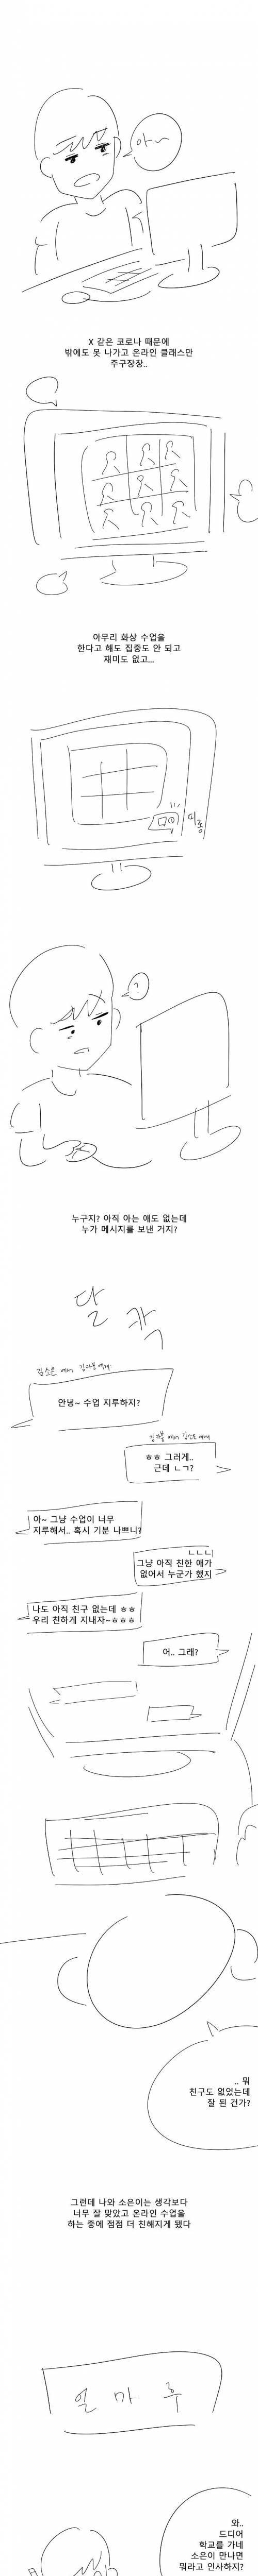 아~
X 같은 코로나 때문에
밖에도 못 나가고 온라인 클래스만
주구장창..
아무리 화상 수업을
한다고 해도 집중도 안 되고
재미도 없고...
띠롱
?
누구지? 아직 아는 애도 없는데
누가 메시지를 보낸 거지?
달
칵
김소은 에게
안녕~ 수업 지루하지?
김소은 에게
ㅎㅎ 그러게..
근데 ㄴㄱ?
아~ 그냥 수업이 너무
지루해서.. 혹시 기분 나쁘니?
ㄴㄴㄴ
그냥 아직 친한 애가
없어서 누군가 했지
나도 아직 친구 없는데 ㅎㅎ
우리 친하게 지내자~ㅎㅎㅎ
어.. 그래?
.. 뭐
친구도 없었는데
잘 된 건가?
그런데 나와 소은이는 생각보다
너무 잘 맞았고 온라인 수업을
하는 중에 점점 더 친해지게 됐다
얼마 후
와..
드디어
학교를 가네
소은이 만나면
뭐라고 인사하지?